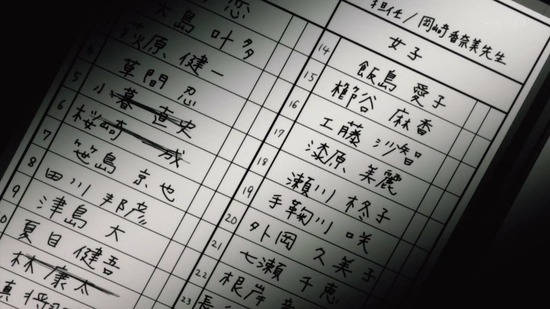 担任/岡崎香奈美先生
女子
大島 叶多
荻原 健一
草間 忍
5 小暮 直史
6 桜崎 一成
7 笹島 京也
8 田川 邦彦
9 津島 大
夏目 健吾
林 康太
14 飯島 愛子
15 櫛谷 麻香
16 工藤 沙智
17 漆原 美麗
18 瀬川 柊子
19 手鞠川 咲
20 外岡 久美子
21 七瀬 千恵
22 根岸
23 長